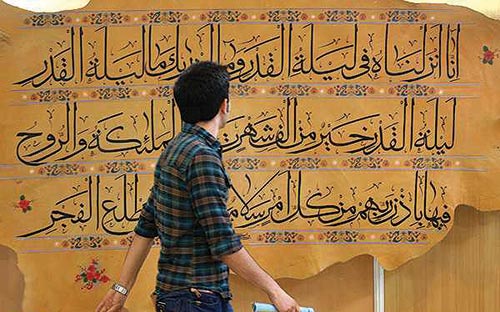 انا انزلناه فى ليلة القدر وما ادريك ما ليلة القدر
ليلة القدر خير من الف شهر الملئكة والروح
فيها باذن ربهم من كل امر سلام مطلع الفجر